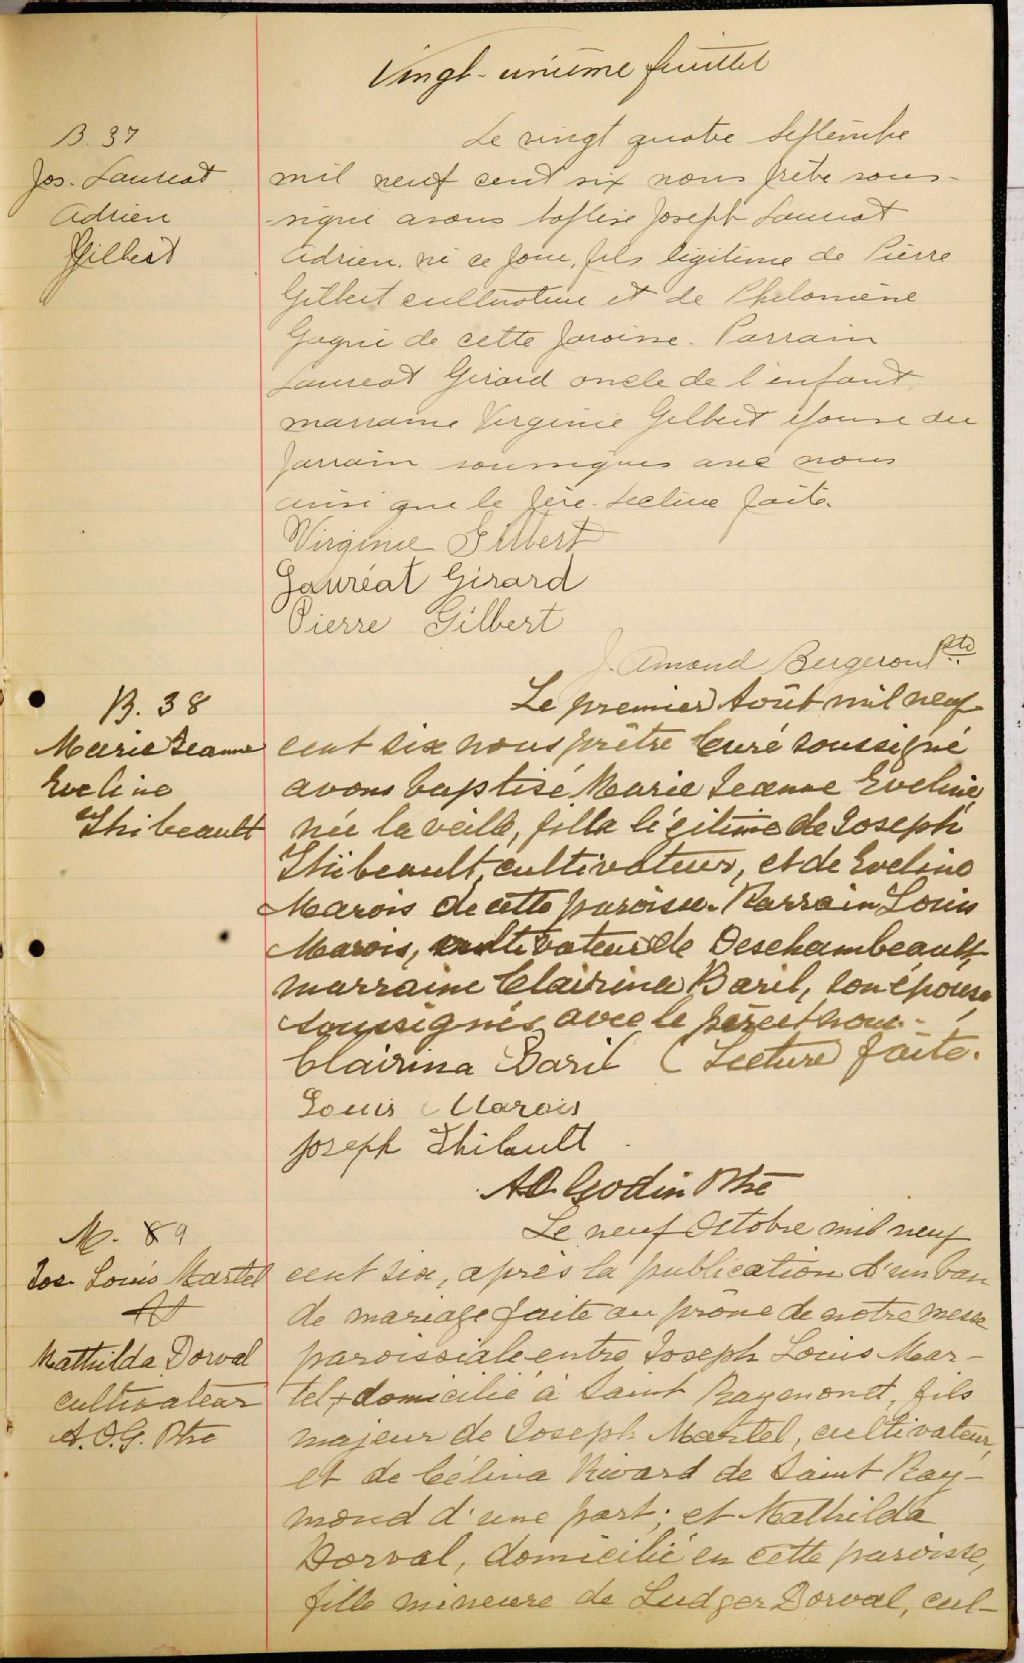 Vingt-unième feuillet
B. 37
Jos. Lauréat
Adrien
Gilbert
Le vingt quatre Septembre
mil neuf cent six nous prêtre sous-
-signé avons baptisé Joseph Lauréat
Adrien, né ce jour, fils légitime de Pierre
Gilbert cultivateur et de Philomène
Gagné de cette paroisse. Parrain
Lauréat Girard oncle de l'enfant
marraine Virginie Gilbert épouse du
parrain soussignés avec nous
ainsi que le père. Lecture faite.
Virginie Gilbert
Lauréat Girard
Pierre Gilbert
J. Amond Bergeron Ptre
B. 38
Marie Jeanne
Eveline
Thibeault
Le premier Août mil neuf
cent six nous prêtre Curé soussigné
avons baptisé Marie Jeanne Eveline,
née la veille, fille légitime de Joseph
Thibeault, cultivateur, et de Eveline
Marois de cette paroisse. Parrain Louis
Marois, cultivateur de Deschambeault,
marraine Clairina Baril, son épouse,
soussignés avec le père et nous.
Clairina Baril ( Lecture faite.
Louis Marois
Joseph Thibault
AO Godin Ptre
M. 9
Jos. Louis Martel
&
Mathilda Dorval
cultivateur
A.O.G. Ptre
Le neuf Octobre mil neuf
cent six, après la publication d'un ban
de mariage faite au prône de notre messe
paroissiale entre Joseph Louis Mar-
tel + domicilié à Saint Raymond, fils
majeur de Joseph Martel, cultivateur,
et de Célina Rivard de Saint Ray-
mond d'une part; et Mathilda
Dorval, domicilié en cette paroisse,
fille mineure de Ludger Dorval, cul-